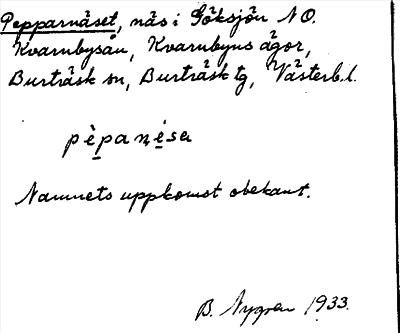 Pepparnäset, näs i Göksjön NO.
Kvarnbysån, Kvarnbyns ägor,
Burträsk sn, Burträsk tg, Västerb.l.
pèpanésa
Namnets uppkomst obekant.
B. Nygren 1933.